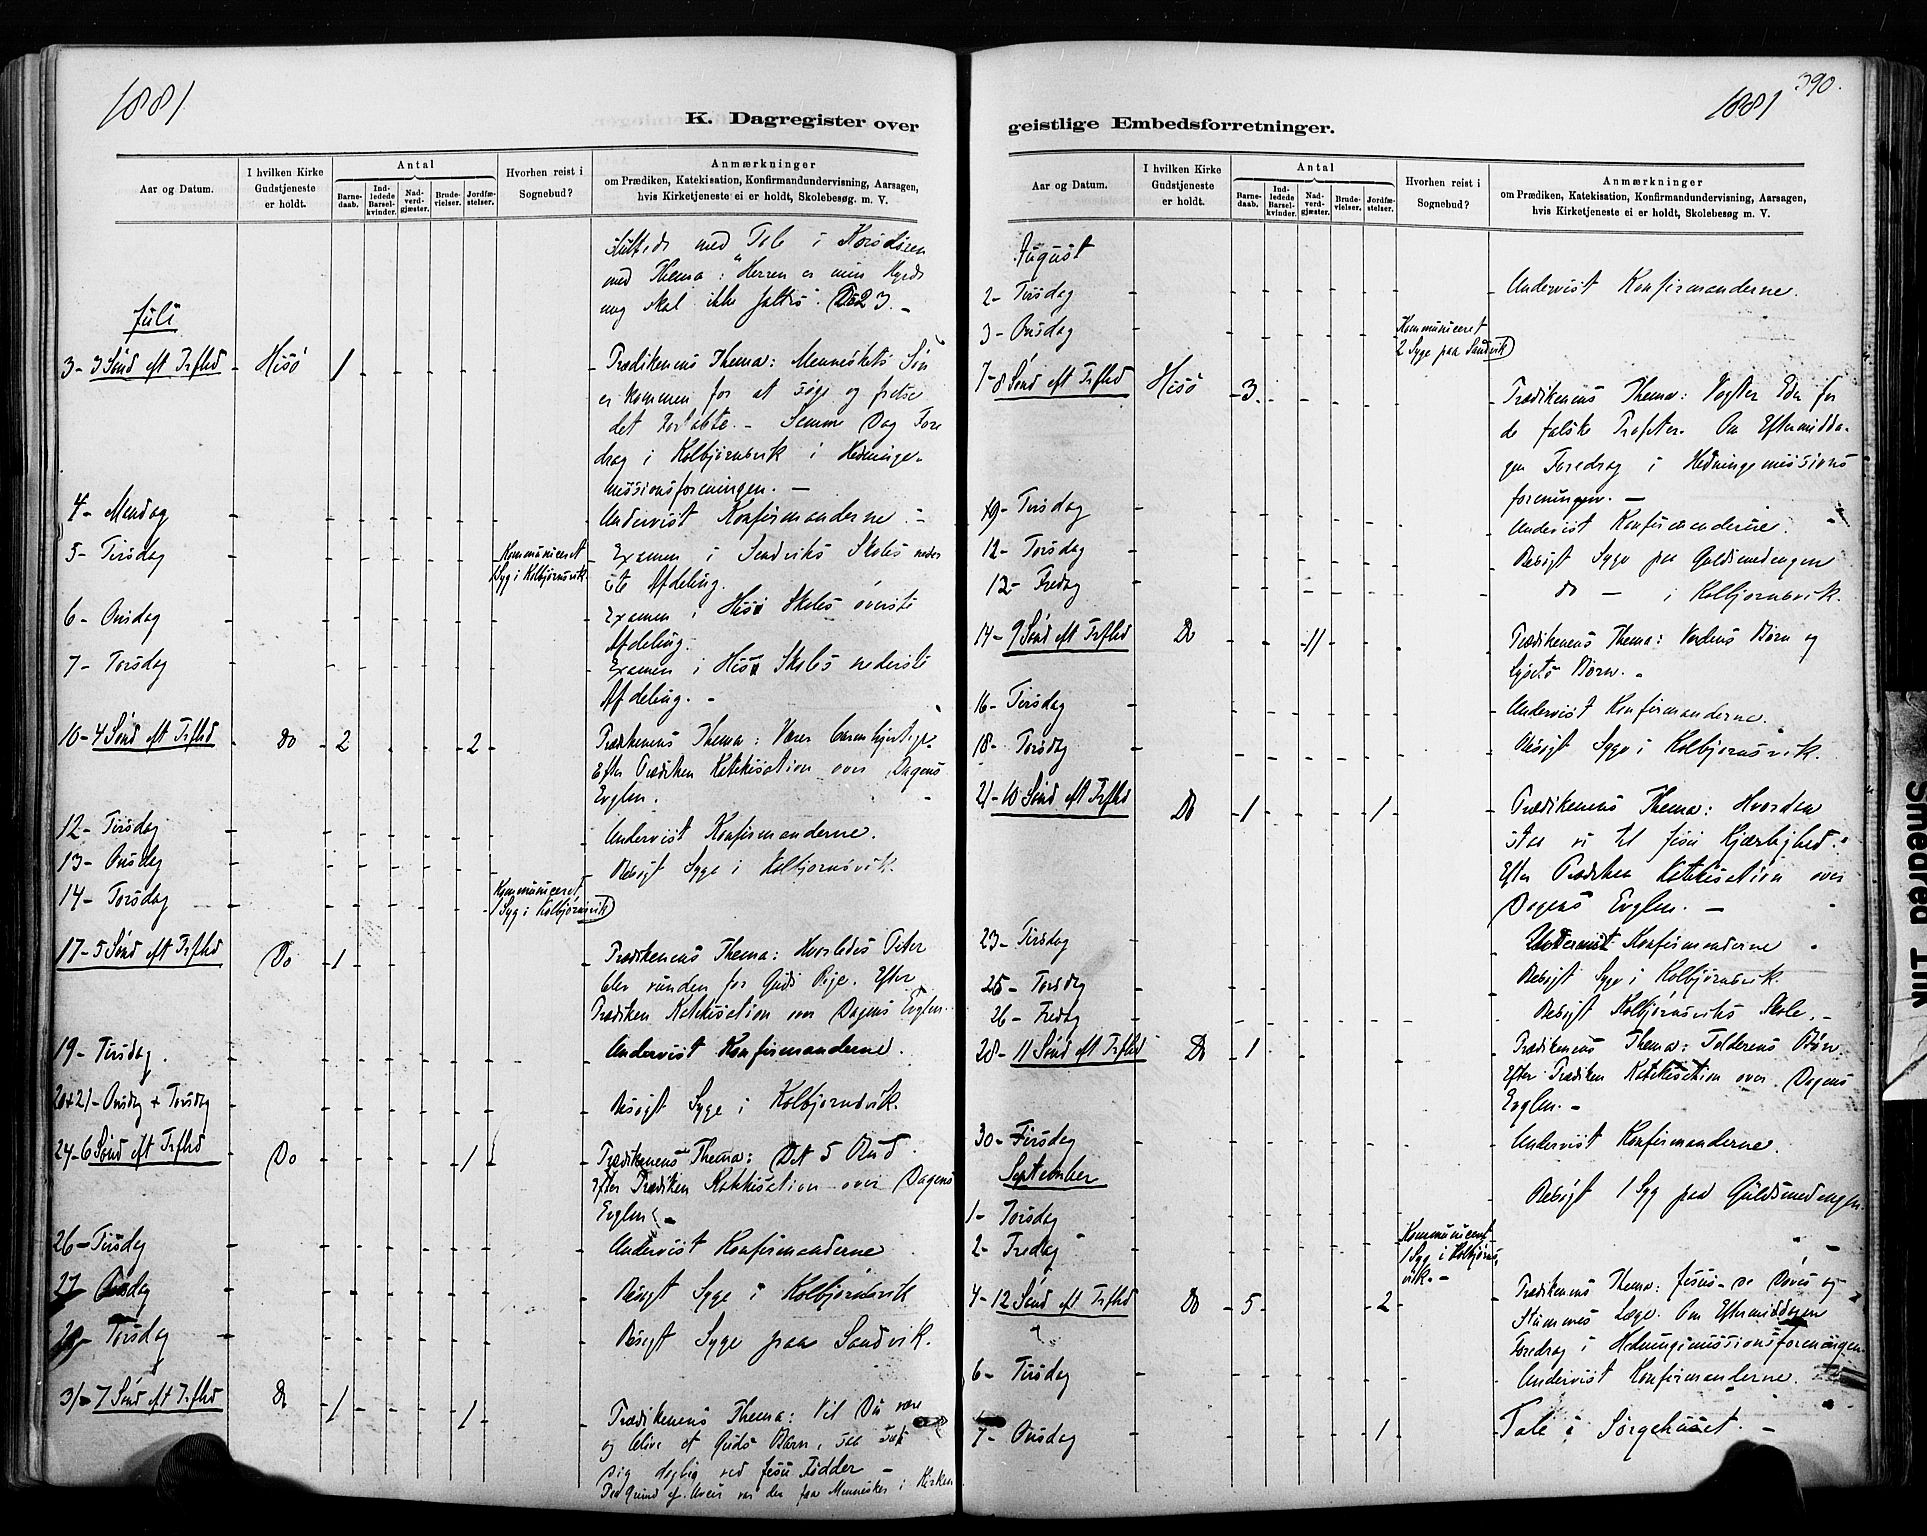 1881
K. Dagregister over
Aar og Datum.
I hvilken Kirke Gudstjeneste er holdt.
Antal
Barne-daab.
Ind-ledede Barsel-kvinder.
Nad-verd-gjæster.
Brude-vielser.
Jordfæ-stelser.
Hvorhen reist i Sognebud?
Anmærkninger
om Prædiken, Katekisation, Konfirmandundervisning, Aarsagen,
hvis Kirketjeneste ei er holdt, Skolebesøg m. V.
med Tale i Korsdøren
med Thema: "Herren er min Hyrde
mig skal ikke fattes". Da 23. -
Juli
3 - 3 Sönd eft Trfhd - Hisö 1 Prædikenens Thema: Menneskets Sön
er kommen for at söge og frelse
det Fortabte. - Samme Dag Fore
drag i Kolbjørnsvik i Hedninge-
missionsforeningen. -
4 - Mandag Undervist Konfirmanderne. -
5 - Tirsdag Kommuniceret Syg i Kolbjørnsvik Examen i Sandviks Skoles neder
ste Afdeling.
6 - Onsdag Examen i Hisö Skoles överste
Afdeling.
7 - Torsdag Examen i Hisö Skoles nederste
Afdeling. -
10 - 4 Sönd eft Trfhd - Do 2 2 Prædikenens Thema: Værer barmhjertige.
Efter Prædiken Katekisation over Dagens
Evglm.
12 - Tirsdag Undervist Konfirmanderne.
13 - Onsdag Besögt Syge i Kolbjørnsvik.
14 - Torsdag Kommuniceret 1 Syg i Kolbjørnsvik
17 - 5 Sönd eft Trfhd Do 1 Prædikenens Thema: Hvorledes Peter
blev vunden for Guds Rige. Efter
Prædiken Katekisation over Dagens Evglm.
19 - Tirsdag. Undervist Konfirmanderne.
20 + 21 - Onsdag + Torsdag Besögt Syge i Kolbjørnsvik.
24 - 6 Sönd eft Trfhd Do 1 Prædikenens Thema: Det 5 Bud.
Efter Prædiken Katekisation over Dagens
Evglm. -
26 - Tirsdag Undervist Konfirmanderne
27 Onsdag Besögt Syge i Kolbjørnsvik
28 - Torsdag Besögt Syge paa Sandvik.
31 - 7 Sönd eft Trfhd Do 1 1 Prædikenens Thema: Vil Du være
og blive et Guds Barn, saa sæt
Dig daglig ved Jesu Födder -
var der faa Mennesker i Kirken
390.
1881
geistlige Embedsforretninger.
Aar og Datum.
I hvilken Kirke Gudstjeneste er holdt.
Antal
Barne-daab.
Ind-ledede Barsel-kvinder.
Nad-verd-gjæster.
Brude-vielser.
Jordfæ-stelser.
Hvorhen reist i Sognebud?
Anmærkninger
om Prædiken, Katekisation, Konfirmandundervisning, Aarsagen,
hvis Kirketjeneste ei er holdt, Skolebesøg m. V.
August
2 - Tirsdag Undervist Konfirmanderne.
3 - Onsdag Kommuniceret 2 Syge paa Sandvik
7 - 8 Sönd eft Trfhd Hisö 3 Prædikenens Thema: Vogter Eder for
de falske Profeter. Om Eftermidda-
gen Foredrag i Hedningemissions
foreningen. -
9 - Tirsdag Undervist Konfirmanderne.
12 - Torsdag Besögt Syge paa Guldsmedengen
12 - Fredag do - i Kolbjørnsvik.
14 - 9 Sönd eft Trfhd Do 11 Prædikenens Thema: Verdens Börn og
Lysets Börn. -
16 - Tirsdag Undervist Konfirmanderne.
18 - Torsdag Besögt Syge i Kolbjørnsvik.
21 - 10 Sönd eft Trfhd Do 1 1 Prædikenens Thema: Hvordan
staa vi til Jesu Kjærlighed.
Efter Prædiken Katekisation over
Dagens Evglm. -
23 - Tirsdag Undervist Konfirmanderne
25 - Torsdag Besögt Syge i Kolbjørnsvik.
26 - Fredag Besögt Kolbjørnsviks Skole. -
28 - 11 Sönd eft Trfhd Do 1 Prædikenens Thema: Tolderens Bön.
Efter Prædiken Katekisation over Dagens
Evglm. -
30 - Tirsdag Undervist Konfirmanderne.
September
1 - Torsdag Besögt 1 Syg paa Guldsmedengen
2 - Fredag Kommuniceret 1 Syg i Kolbjørns-vik. -
4 - 12 Sönd eft Trfhd Do 5 2 Prædikenens Thema: Jesus - de Döves og
Stummes Læge. Om Eftermiddagen
Foredrag i Hedningemissionsforeningen.
6 - Tirsdag Undervist Konfirmanderne.
7 - Onsdag 1 Tale i Sörgehuset. -
Smeared Ink